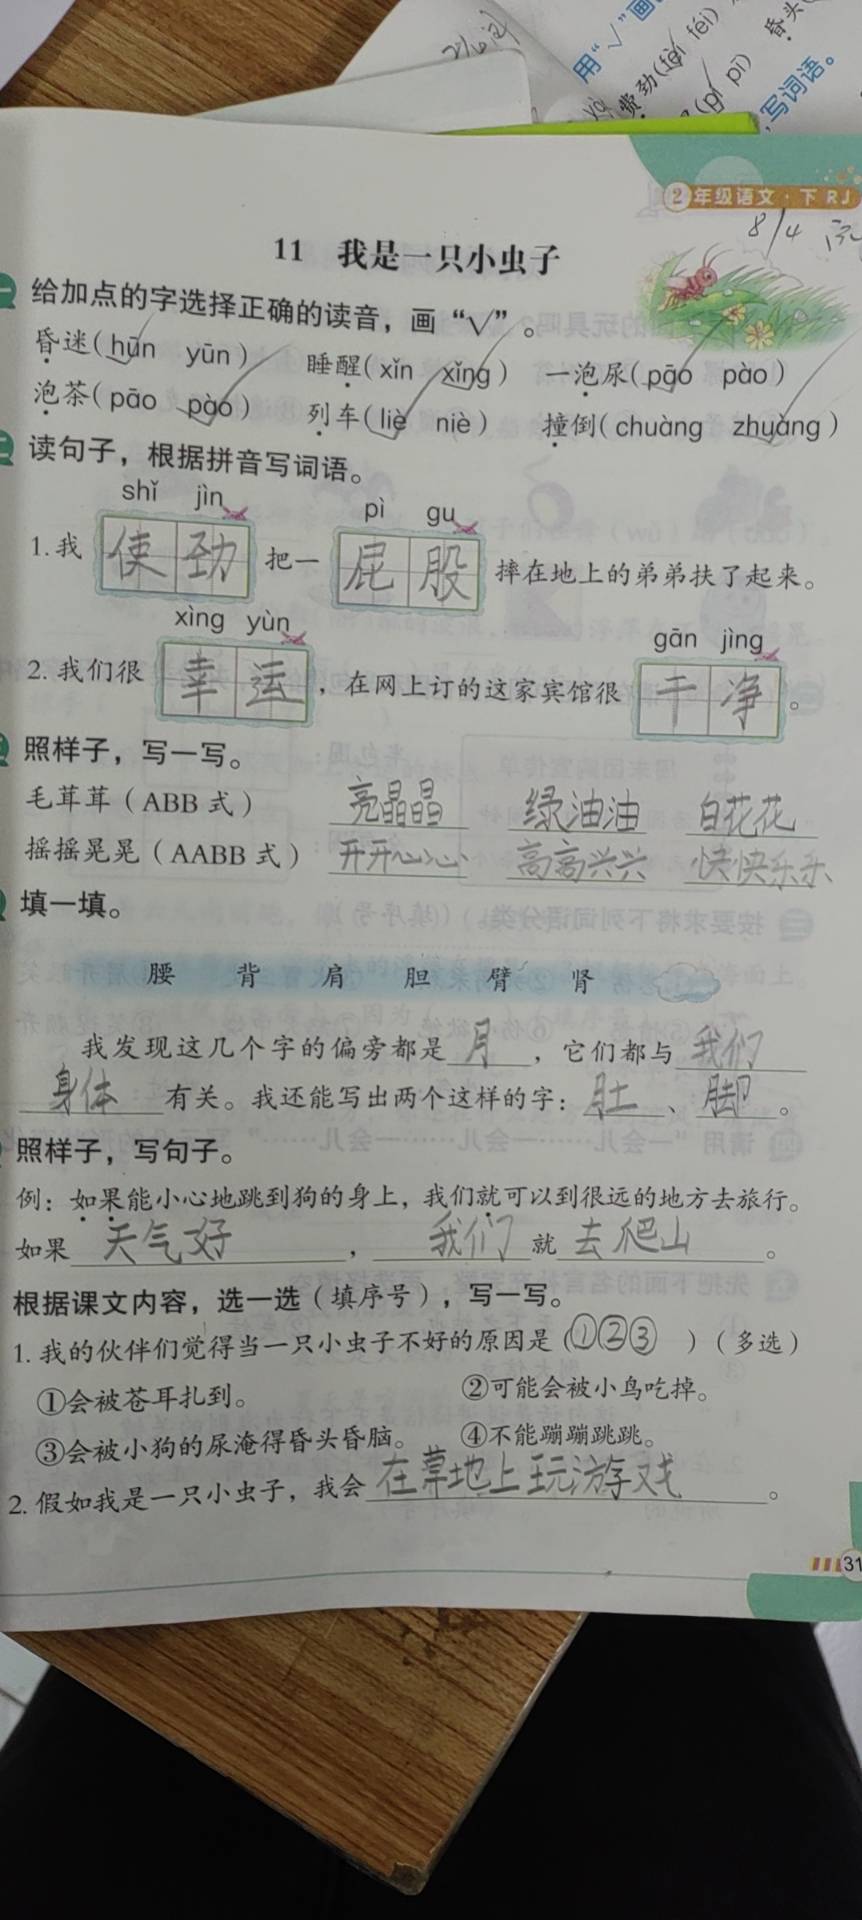 用“√”画
费劲(fèi féi)
昏头
(pí pì)
,写词语。
2年级语文·下 RJ
8/4
11 我是一只小虫子
一 给加点的字选择正确的读音，画“√”。
昏迷(hūn yūn) 睡醒(xǐn xǐng) 一泡尿(pāo pào)
泡茶(pāo pào) 列车(liè niè) 撞倒(chuàng zhuàng)
二 读句子，根据拼音写词语。
shǐ jìn pì gu
1.我 使劲 把一 屁股 摔在地上的弟弟扶了起来。
xìng yùn gān jìng
2.我们很 幸运 ，在网上订的这家宾馆很 干净 。
照样子，写一写。
毛茸茸（ABB式） 亮晶晶 绿油油 白花花
摇摇晃晃（AABB式） 开开心心 高高兴兴 快快乐乐
填一填。
腰 背 肩 胆 臂 肾
我发现这几个字的偏旁都是 月 ，它们都与 我们
身体 有关。我还能写出两个这样的字：肚、脚。
照样子，写句子。
例：如果能小心地跳到狗的身上，我们就可以到很远的地方去旅行。
如果 天气好 ， 我们 就 去爬山 。
根据课文内容，选一选（填序号），写一写。
1.我的伙伴们觉得当一只小虫子不好的原因是（①②③）（多选）
①会被苍耳扎到。 ②可能会被小鸟吃掉。
③会被小狗的尿淹得昏头昏脑。 ④不能蹦蹦跳跳。
2.假如我是一只小虫子，我会 在草地上玩游戏 。
31